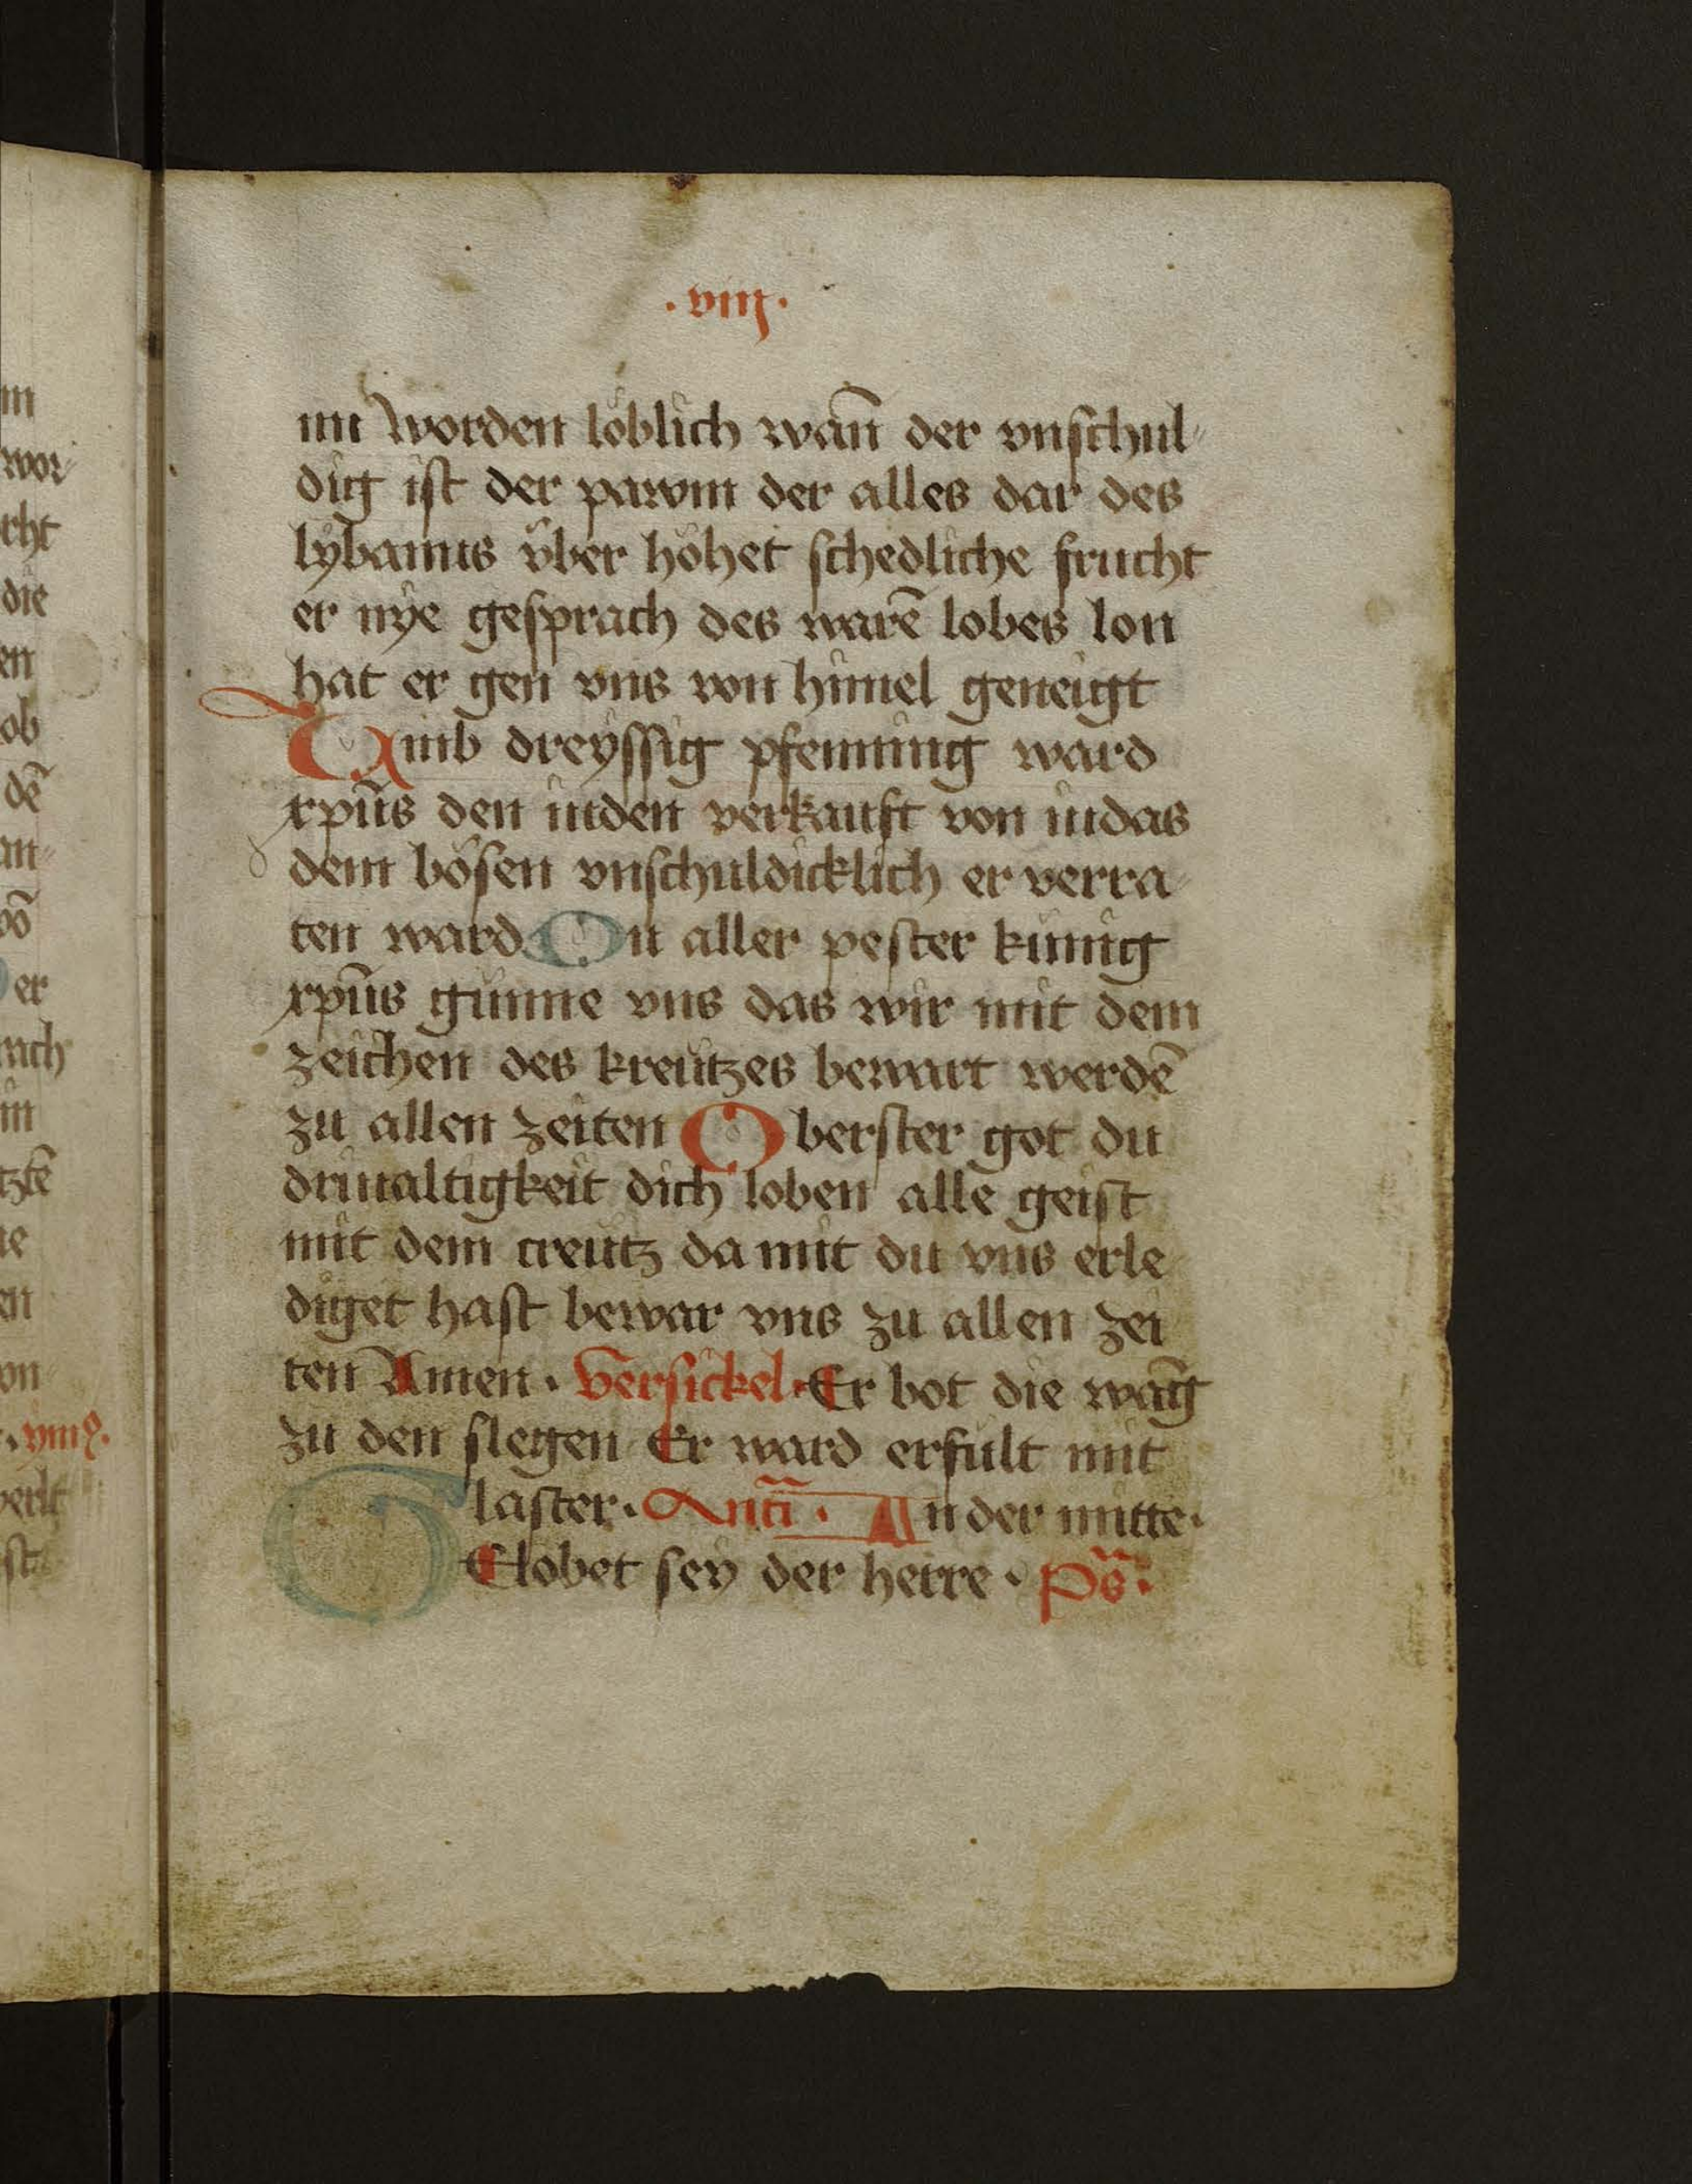 ·viij·
im worden löblich wañ der vnschul
dig ist der pawm der alles dar des
lybanus über höhet schedliche frucht
er nye gesprach des warē lobes lon
hat er gen vns von himel geneigt
Umb dreyssig pfenning ward
xpūs den iuden verkauft von iudas
dem bösen vnschuldicklich er verra
ten ward On aller pester künig
xpūs günne vns das wir mit dem
zeichen des kreützes bewart werdē
zu allen zeiten Oberster got du
driualtigkeit dich loben alle geist
mit dem creütz da mit du vns erle
diget hast bewar vns zu allen zei
ten Amen · Versickel · Er bot die wāg
zu den slegen Er ward erfült mit
laster · Antī · In der mitte ·
GElobet sey der herre · Ps̄ ·